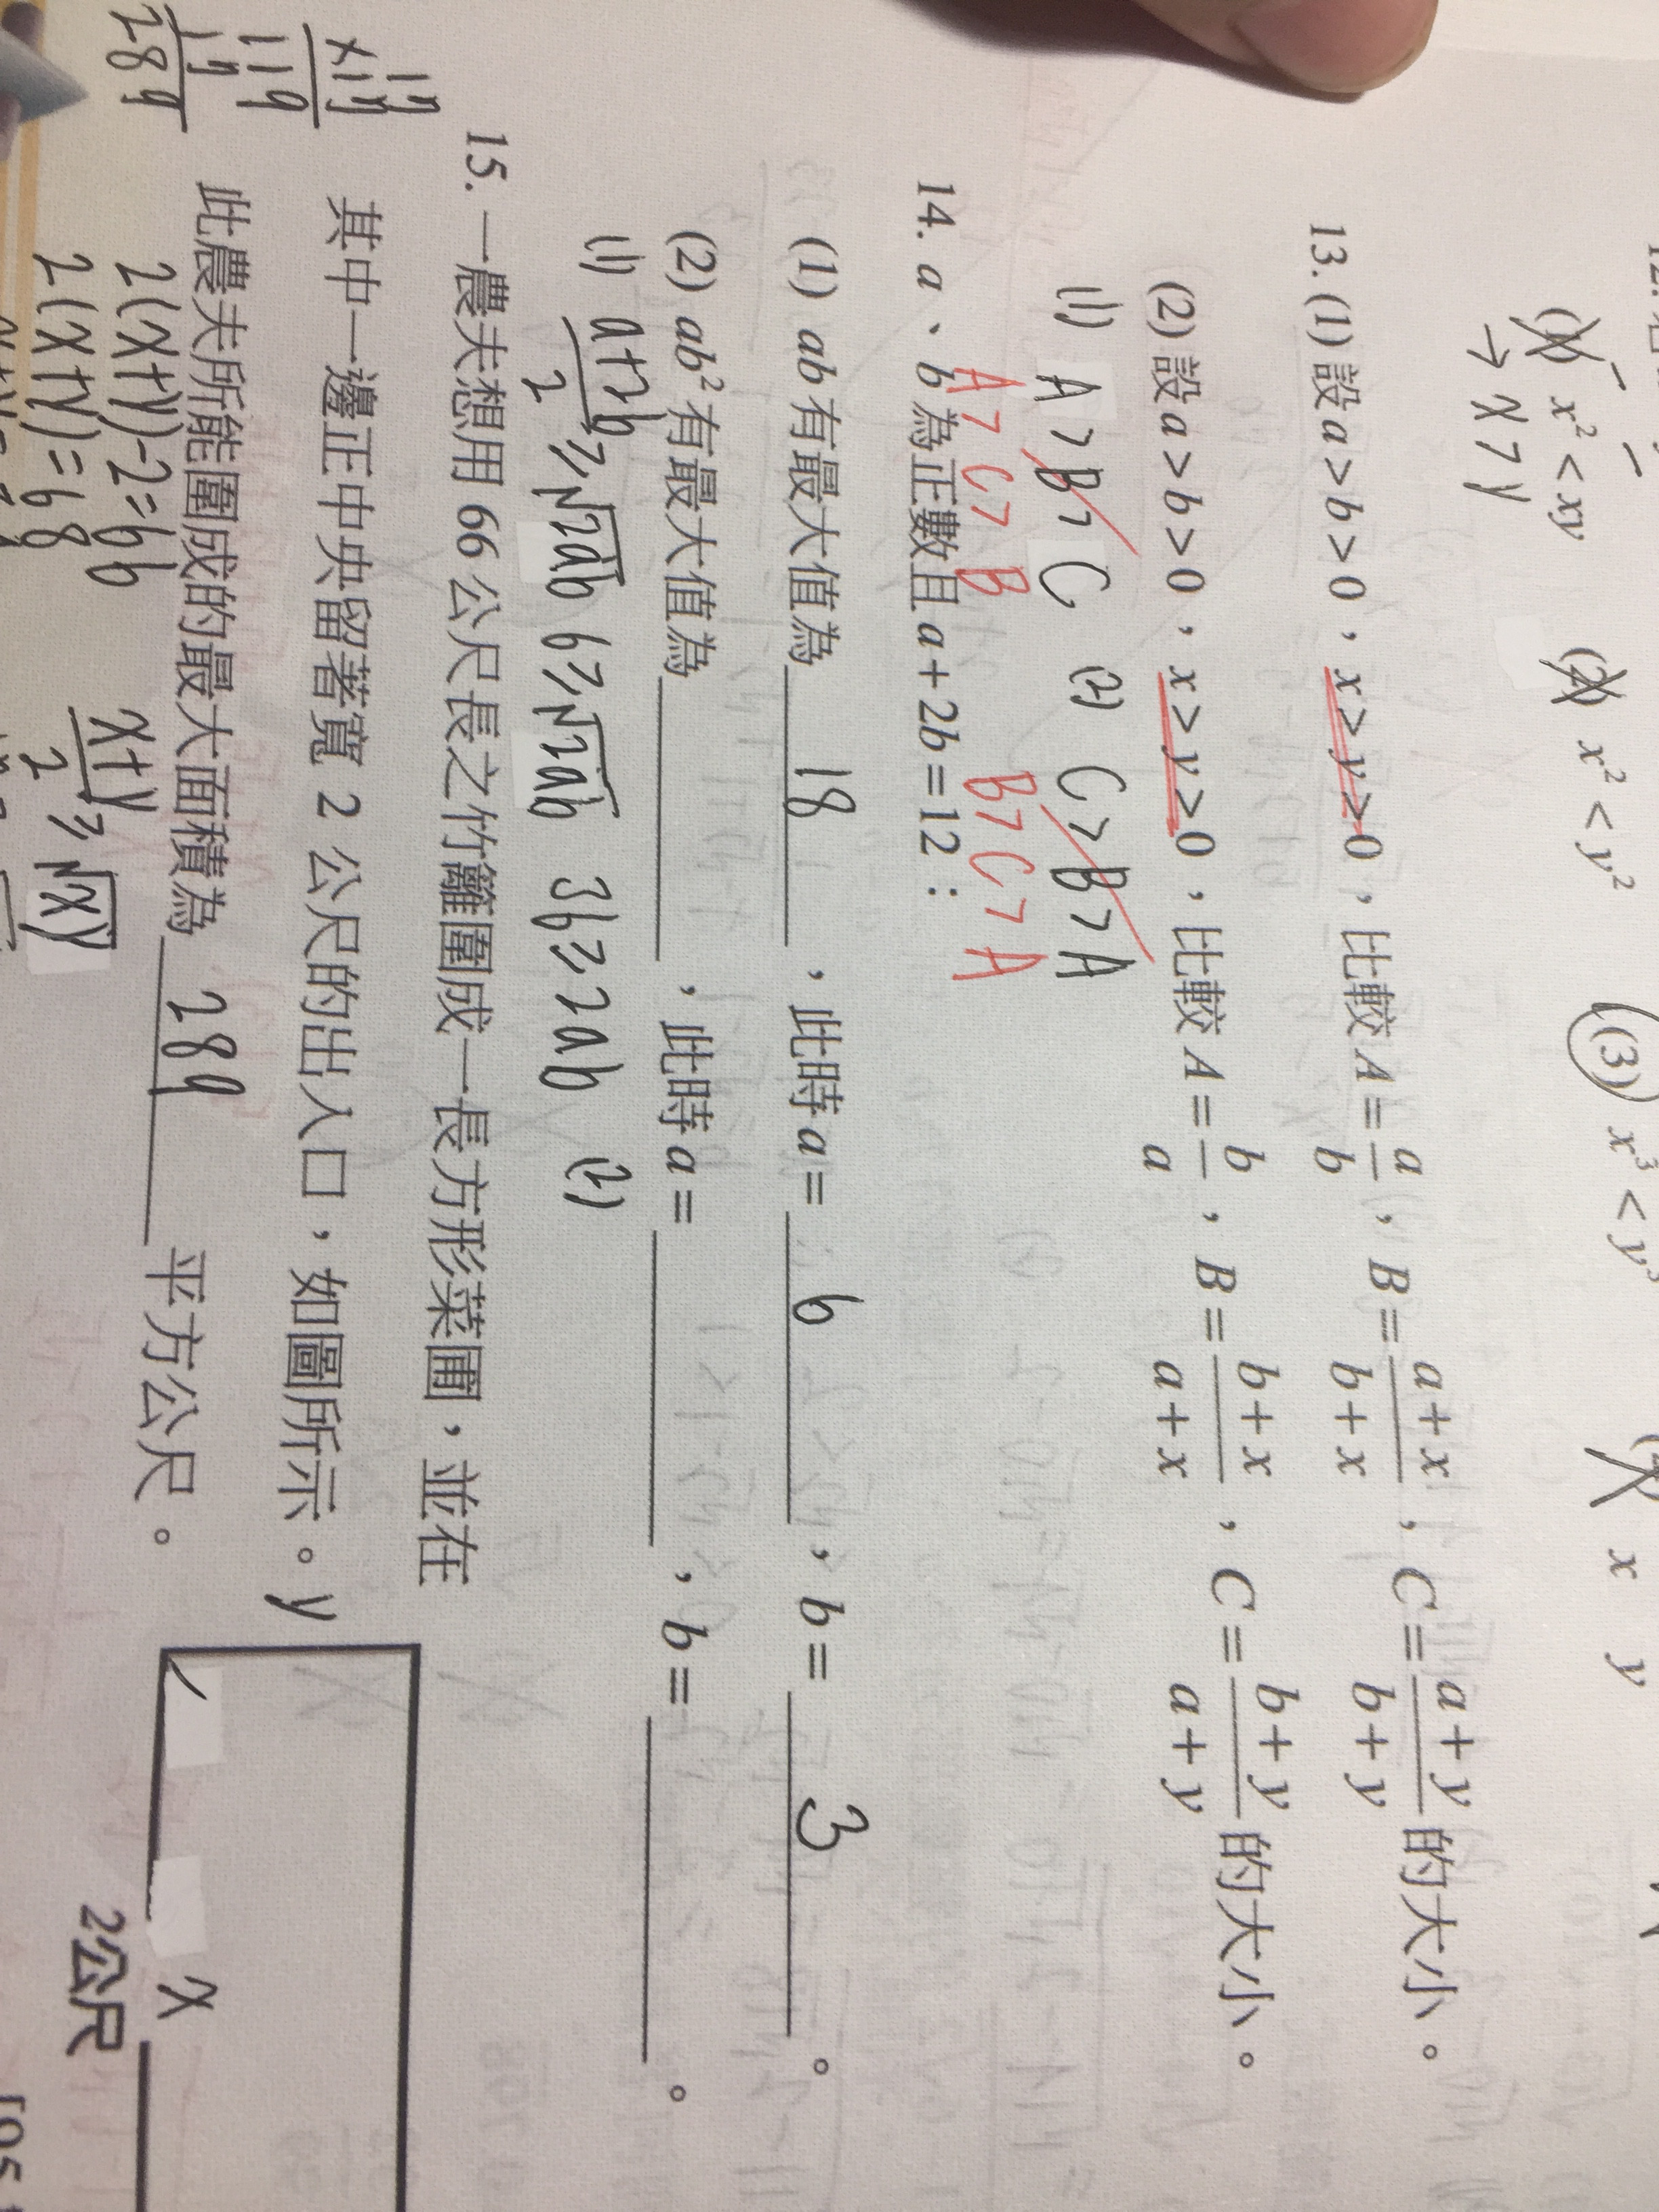 (1) x² < xy (2) x² < y² (3) x³ < y³
→ x > y
13. (1) 設 a > b > 0，x > y > 0，比較 A = a/b，B = (a+x)/(b+x)，C = (a+y)/(b+y) 的大小。
(2) 設 a > b > 0，x > y > 0，比較 A = b/a，B = (b+x)/(a+x)，C = (b+y)/(a+y) 的大小。
(1) A > B > C (2) C > B > A
A > C > B B > C > A
14. a、b 為正數且 a + 2b = 12：
(1) ab 有最大值為 18，此時 a = 6，b = 3。
(2) ab² 有最大值為______，此時 a = ______，b = ______。
(1) (a+2b)/2 ≥ √2ab 6 ≥ √2ab 36 ≥ 2ab (2)
15. 一農夫想用 66 公尺長之竹籬圍成一長方形菜圃，並在
其中一邊正中央留著寬 2 公尺的出入口，如圖所示。
此農夫所能圍成的最大面積為 289 平方公尺。
y
x
2公尺
17
×17
119
17
289
2(x+y)-2=66
2(x+y)=68
(x+y)/2 ≥ √xy